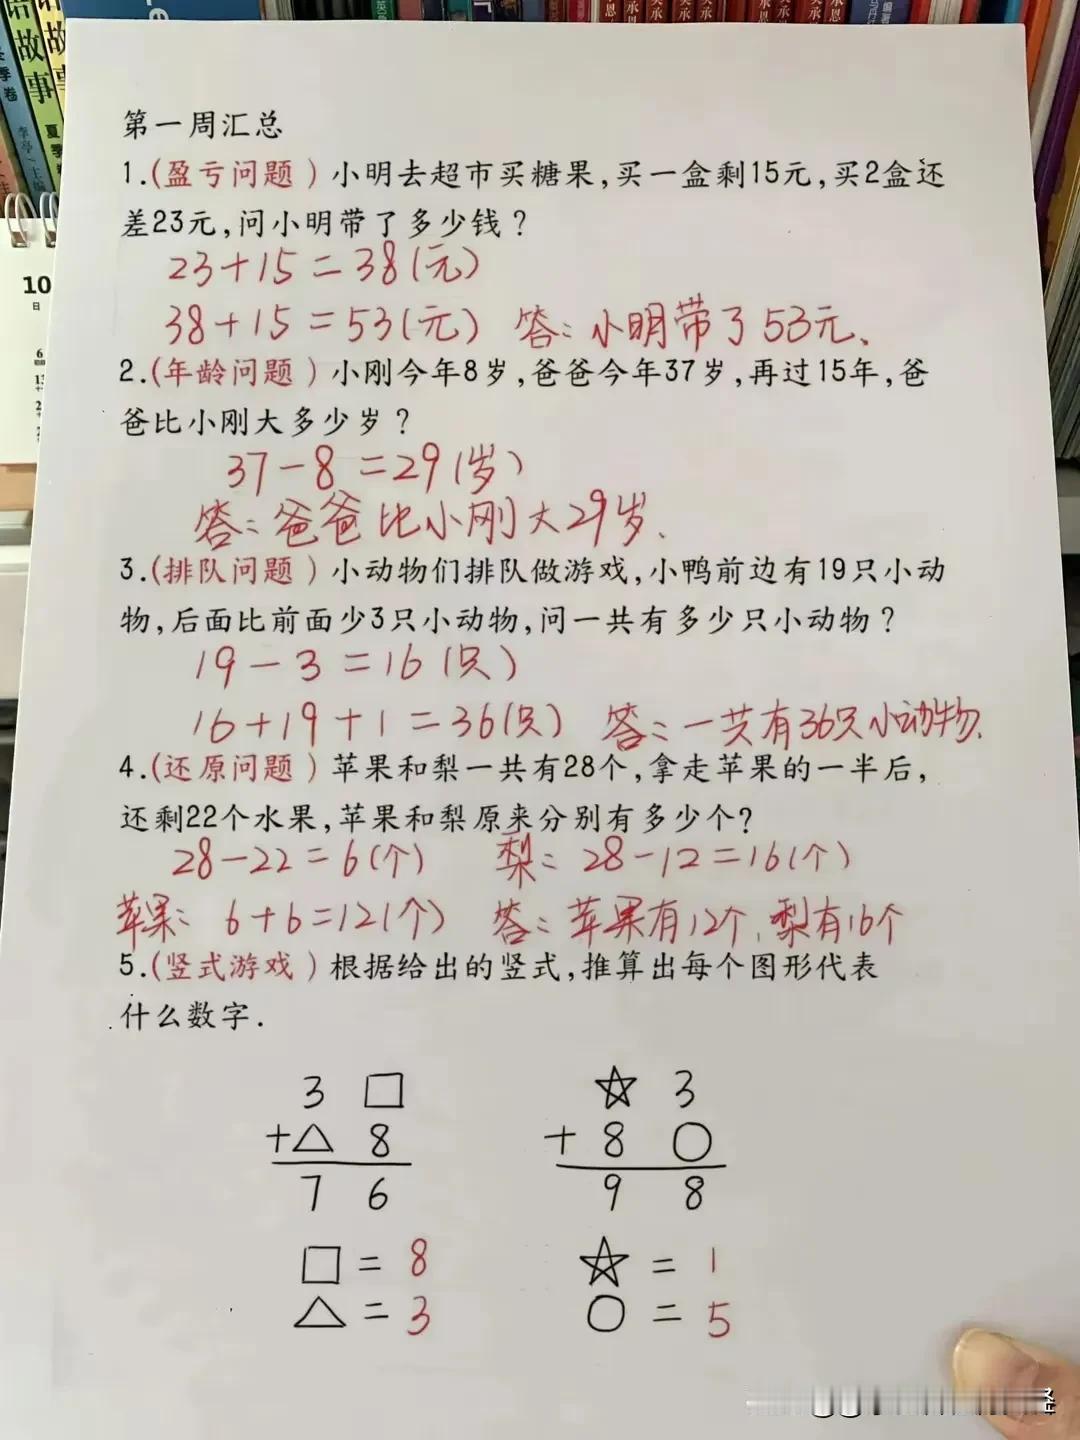 故事
冬季卷
故事
夏季
李亭 主编
10
日
6
13
第一周汇总
1.(盈亏问题)小明去超市买糖果,买一盒剩15元,买2盒还
差23元,问小明带了多少钱?
23+15=38(元)
38+15=53(元) 答:小明带了53元.
2.(年龄问题)小刚今年8岁,爸爸今年37岁,再过15年,爸
爸比小刚大多少岁?
37-8=29(岁)
答:爸爸比小刚大29岁.
3.(排队问题)小动物们排队做游戏,小鸭前边有19只小动
物,后面比前面少3只小动物,问一共有多少只小动物?
19-3=16(只)
16+19+1=36(只) 答:一共有36只小动物.
4.(还原问题)苹果和梨一共有28个,拿走苹果的一半后,
还剩22个水果,苹果和梨原来分别有多少个?
28-22=6(个) 梨:28-12=16(个)
苹果:6+6=12(个) 答:苹果有12个,梨有16个
5.(竖式游戏)根据给出的竖式,推算出每个图形代表
什么数字.
3 □ ☆ 3
+△ 8 + 8 ○
7 6 9 8
□=8 ☆=1
△=3 ○=5